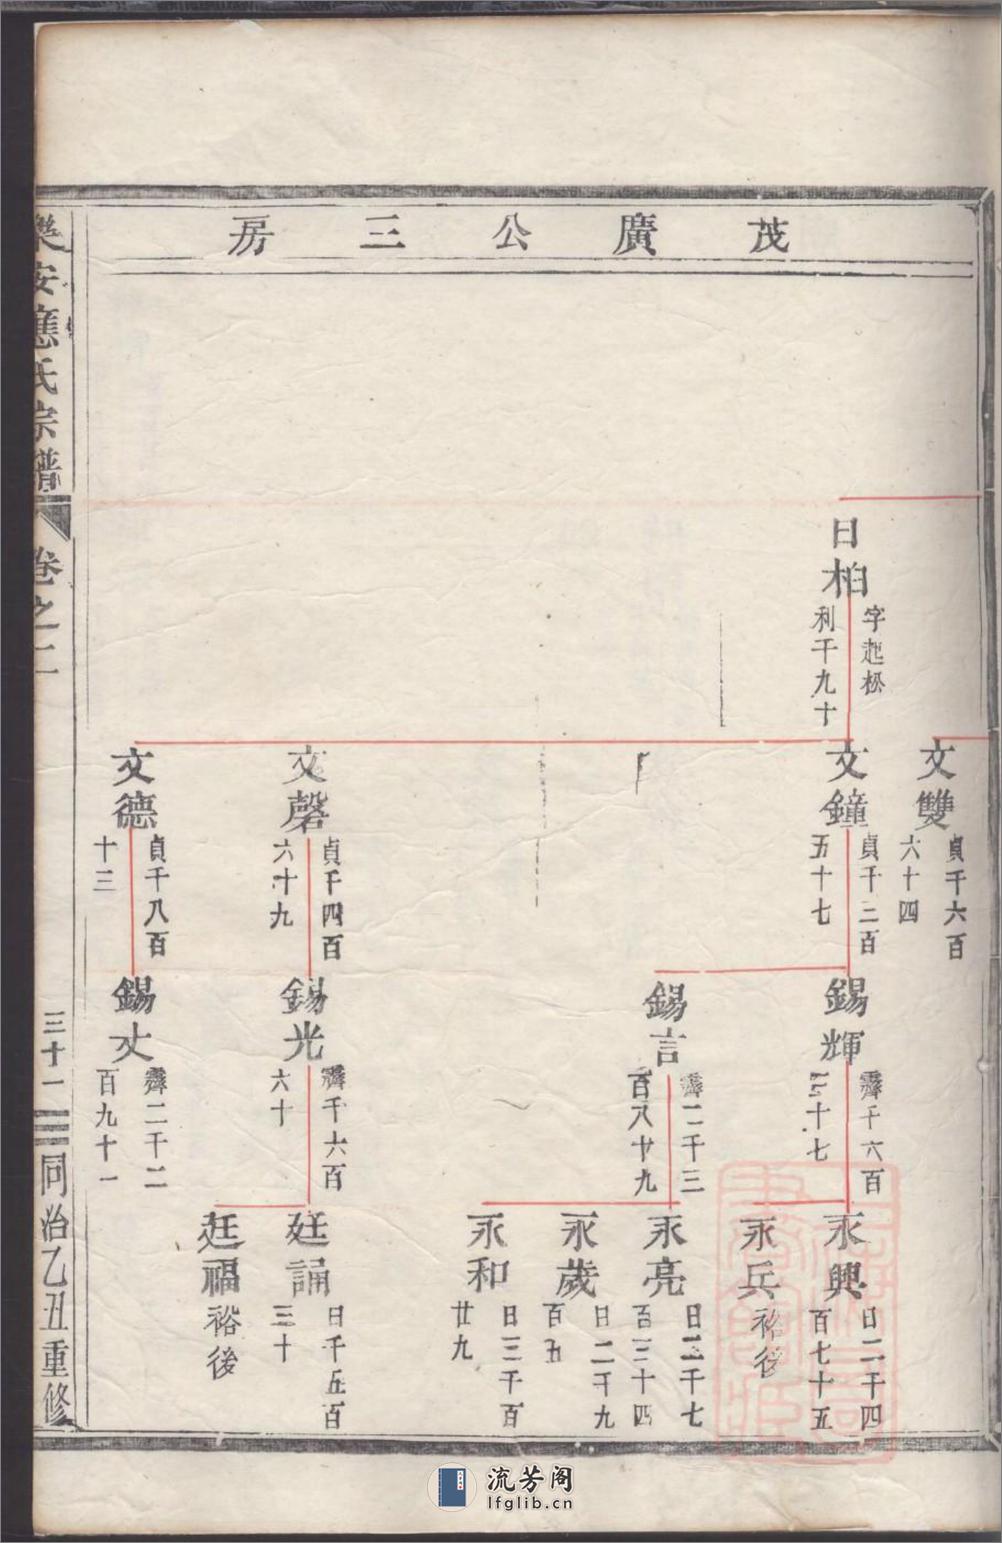 茂廣公三房
日柏
字起松
利千九十
文雙
貞千六百
六十四
文鐘
貞千二百
五十七
文磬
貞千四百
六十九
文德
貞千八百
十三
錫輝
霽千六百
十七
錫言
霽二千三
百八十九
錫光
霽千六百
六十
錫丈
霽二千二
百九十一
永興
日二千四
百七十五
永兵
裕後
永亮
日二千七
百三十四
永歲
日二千九
百五
永和
日三千百
廿九
廷誦
日千五百
三十
廷福
裕後
樂安應氏宗譜
卷之二
三十一
同治乙丑重修
流芳阁
lfglib.cn